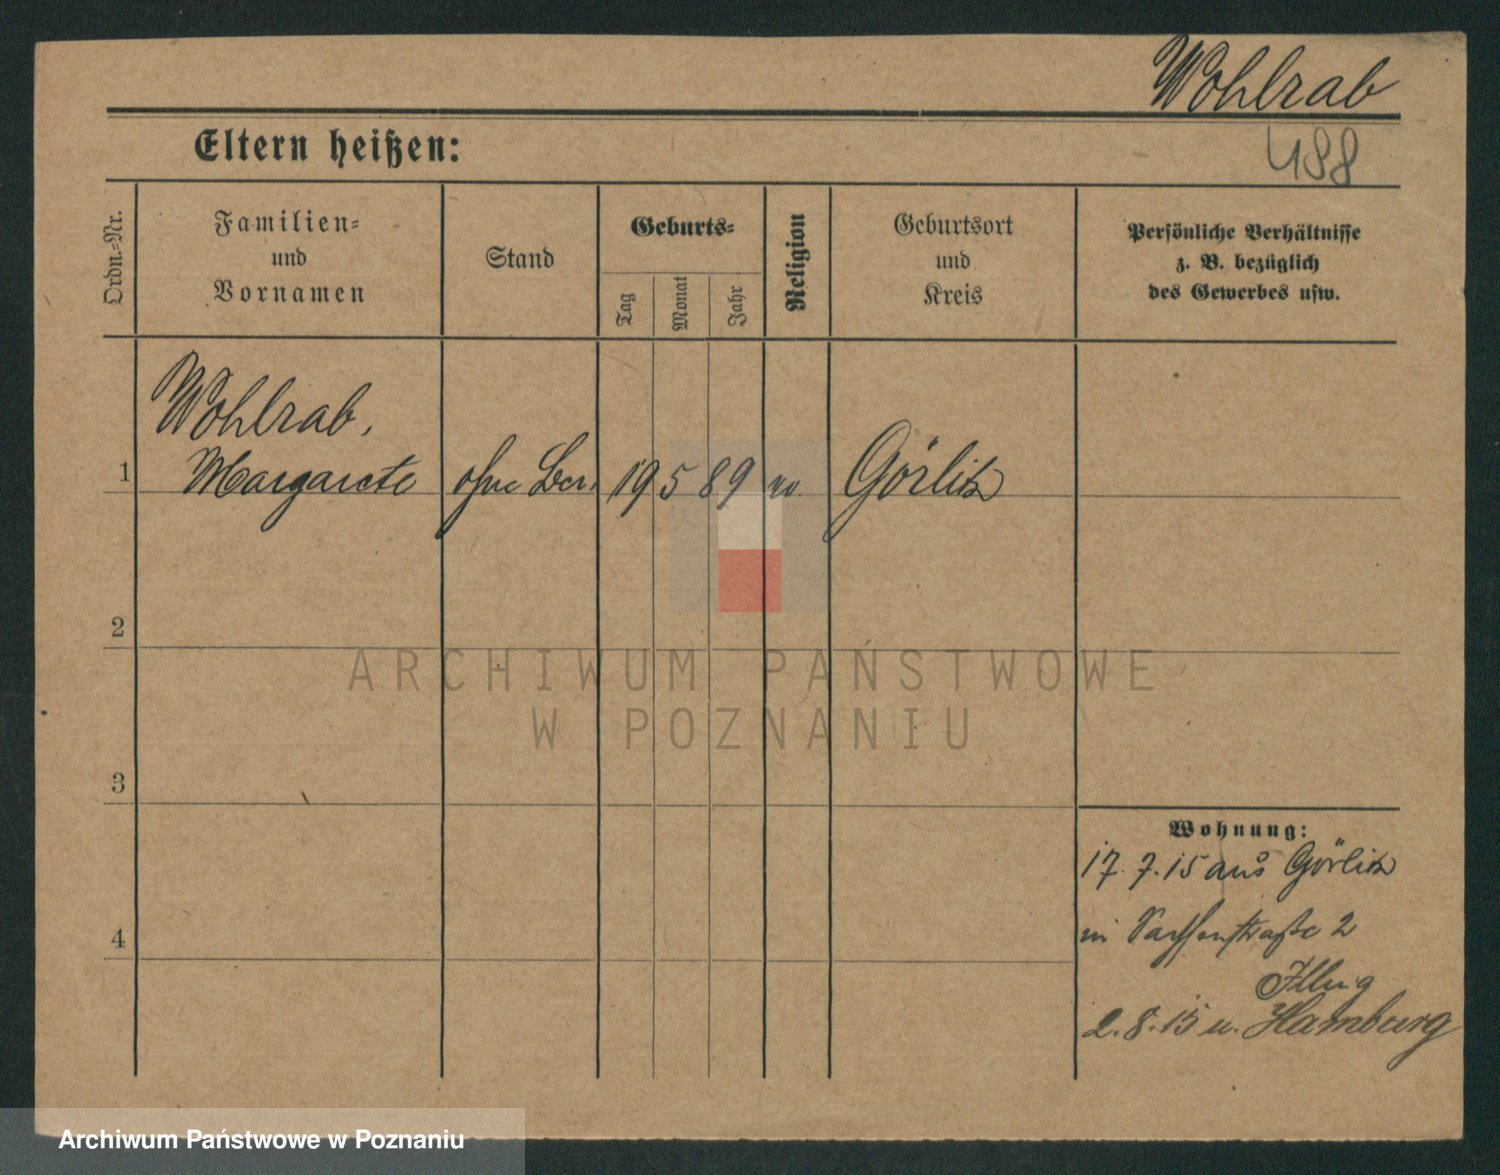 Wohlrab
488
Eltern heißen:
Ordn.-Nr.
Familien-
und
Vornamen
Stand
Geburts-
Tag
Monat
Jahr
Religion
Geburtsort
und
Kreis
Persönliche Verhältnisse
z. B. bezüglich
des Gewerbes usw.
Wohlrab,
1 Margarete ohne Ber. 19 5 89 Görlitz
2
3
4
Wohnung:
17. 7. 15 aus Görlitz
in Sachsenstraße 2
Illing
2. 8. 15 n. Hamburg
ARCHIWUM PAŃSTWOWE
W POZNANIU
Archiwum Państwowe w Poznaniu